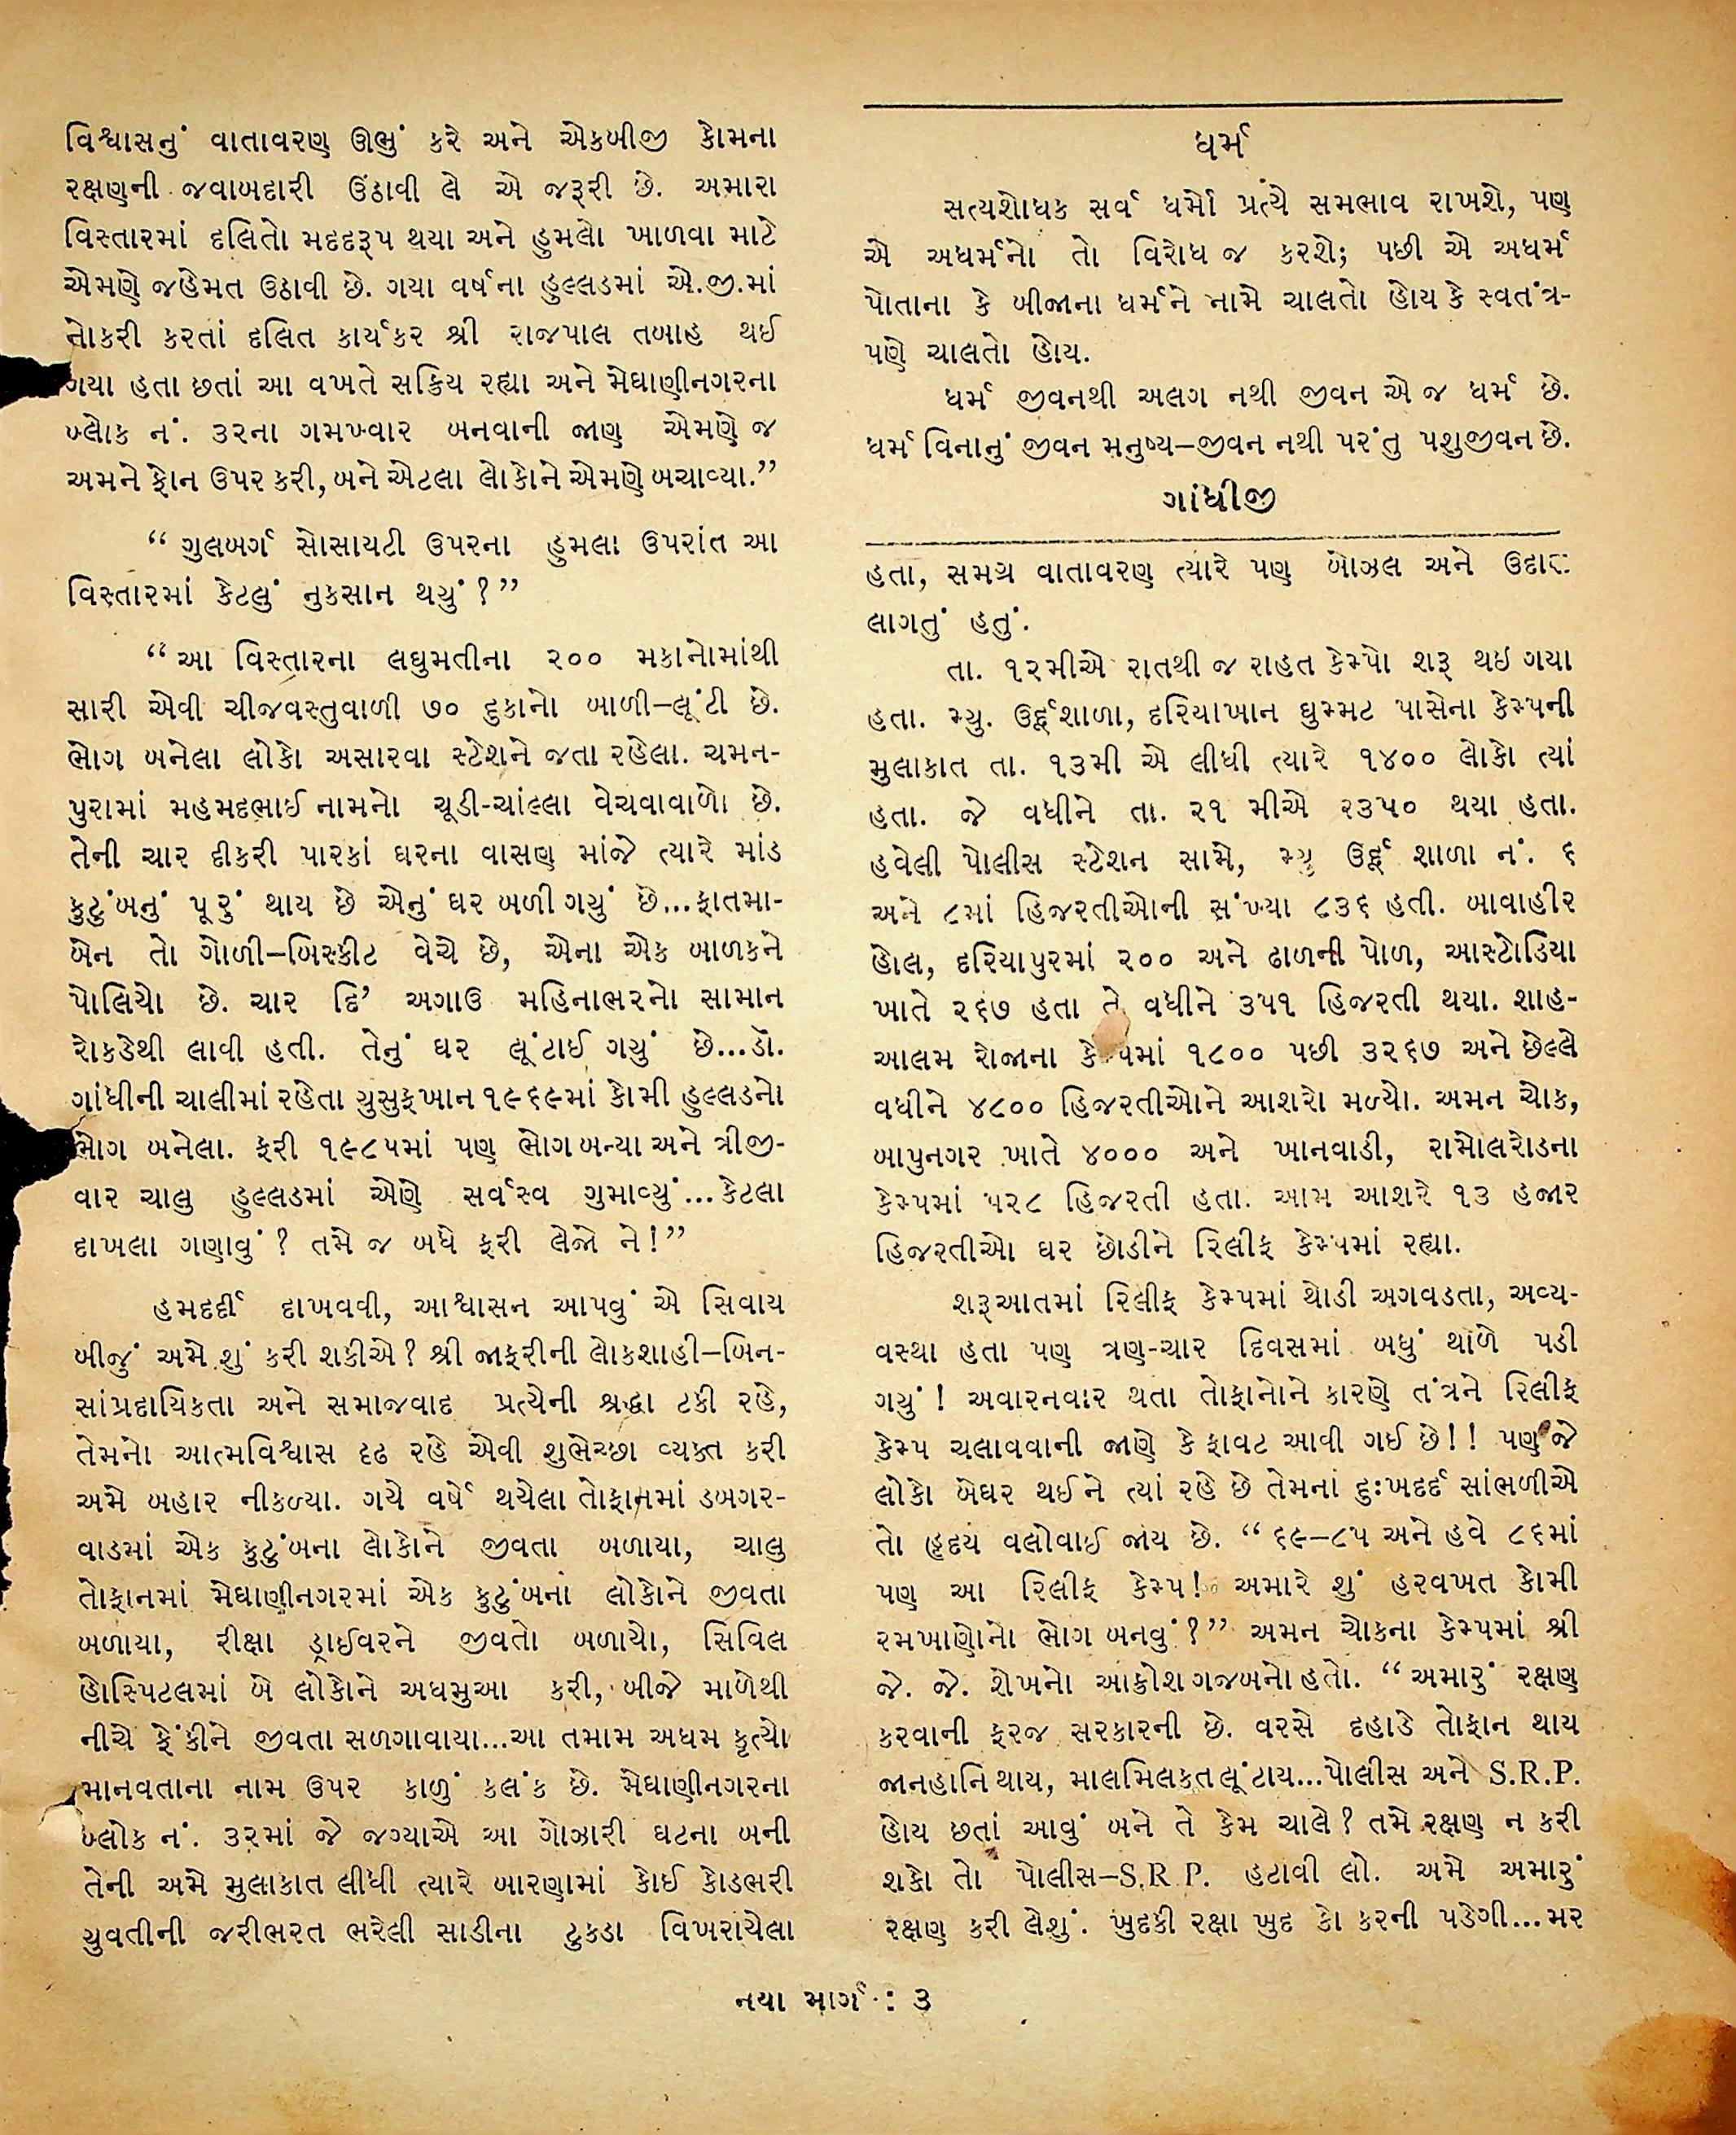 વિશ્વાસનું વાતાવરણ ઊભું કરે અને એકબીજી કોમના
રક્ષણની જવાબદારી ઉઠાવી લે એ જરૂરી છે. અમારા
વિસ્તારમાં દલિતો મદદરૂપ થયા અને હુમલો ખાળવા માટે
એમણે જહેમત ઉઠાવી છે. ગયા વર્ષના હુલ્લડમાં એ.જી.માં
નોકરી કરતાં દલિત કાર્યકર શ્રી રાજપાલ તબાહ થઈ
ગયા હતા છતાં આ વખતે સક્રિય રહ્યા અને મેઘાણીનગરના
બ્લોક નં. ૩૨ના ગમખ્વાર બનવાની જાણ એમણે જ
અમને ફોન ઉપર કરી, બને એટલા લોકોને એમણે બચાવ્યા.”
“ ગુલબર્ગ સોસાયટી ઉપરના હુમલા ઉપરાંત આ
વિસ્તારમાં કેટલું નુકસાન થયું ?”
“ આ વિસ્તારના લઘુમતીના ૨૦૦ મકાનોમાંથી
સારી એવી ચીજવસ્તુવાળી ૭૦ દુકાનો બાળી–લૂંટી છે.
ભોગ બનેલા લોકો અસારવા સ્ટેશને જતા રહેલા. ચમન-
પુરામાં મહમદભાઈ નામનો ચૂડી-ચાંલ્લા વેચવાવાળો છે.
તેની ચાર દીકરી પારકાં ઘરના વાસણ માંજે ત્યારે માંડ
કુટુંબનું પૂરું થાય છે એનું ઘર બળી ગયું છે...ફાતમા-
બેન તો ગોળી–બિસ્કીટ વેચે છે, એના એક બાળકને
પોલિયો છે. ચાર દિ’ અગાઉ મહિનાભરનો સામાન
રોકડેથી લાવી હતી. તેનું ઘર લૂંટાઈ ગયું છે...ડૉ.
ગાંધીની ચાલીમાં રહેતા યુસુફખાન ૧૯૬૯માં કોમી હુલ્લડનો
ભોગ બનેલા. ફરી ૧૯૮૫માં પણ ભોગ બન્યા અને ત્રીજી-
વાર ચાલુ હુલ્લડમાં એણે સર્વસ્વ ગુમાવ્યું...કેટલા
દાખલા ગણાવું ? તમે જ બધે ફરી લેજો ને!”
હમદર્દી દાખવવી, આશ્વાસન આપવું એ સિવાય
બીજું અમે શું કરી શકીએ? શ્રી જાફરીની લોકશાહી–બિન-
સાંપ્રદાયિકતા અને સમાજવાદ પ્રત્યેની શ્રદ્ધા ટકી રહે,
તેમનો આત્મવિશ્વાસ દૃઢ રહે એવી શુભેચ્છા વ્યક્ત કરી
અમે બહાર નીકળ્યા. ગયે વર્ષે થયેલા તોફાનમાં ડબગર-
વાડમાં એક કુટુંબના લોકોને જીવતા બળાયા, ચાલુ
તોફાનમાં મેઘાણીનગરમાં એક કુટુંબનાં લોકોને જીવતા
બળાયા, રીક્ષા ડ્રાઈવરને જીવતો બળાયો, સિવિલ
હોસ્પિટલમાં બે લોકોને અધમુઆ કરી, બીજે માળેથી
નીચે ફેંકીને જીવતા સળગાવાયા...આ તમામ અધમ કૃત્યો
માનવતાના નામ ઉપર કાળું કલંક છે. મેઘાણીનગરના
બ્લોક નં. ૩૨માં જે જગ્યાએ આ ગોઝારી ઘટના બની
તેની અમે મુલાકાત લીધી ત્યારે બારણામાં કોઈ કોડભરી
યુવતીની જરીભરત ભરેલી સાડીના ટુકડા વિખરાયેલા
ધર્મ
સત્યશોધક સર્વ ધર્મો પ્રત્યે સમભાવ રાખશે, પણ
એ અધર્મનો તો વિરોધ જ કરશે; પછી એ અધર્મ
પોતાના કે બીજાના ધર્મને નામે ચાલતો હોય કે સ્વતંત્ર-
પણે ચાલતો હોય.
ધર્મ જીવનથી અલગ નથી જીવન એ જ ધર્મ છે.
ધર્મ વિનાનું જીવન મનુષ્ય–જીવન નથી પરંતુ પશુજીવન છે.
ગાંધીજી
હતા, સમગ્ર વાતાવરણ ત્યારે પણ બોઝલ અને
લાગતું હતું.
તા. ૧૨મીએ રાતથી જ રાહત કેમ્પો શરૂ થઇ ગયા
હતા. મ્યુ. ઉર્દૂશાળા, દરિયાખાન ઘુમ્મટ પાસેના કેમ્પની
મુલાકાત તા. ૧૩મી એ લીધી ત્યારે ૧૪૦૦ લોકો ત્યાં
હતા. જે વધીને તા. ૨૧ મીએ ૨૩૫૦ થયા હતા.
હવેલી પોલીસ સ્ટેશન સામે, મ્યુ ઉર્દૂ શાળા નં. ૬
અને ૮માં હિજરતીઓની સંખ્યા ૮૩૬ હતી. બાવાહીર
હોલ, દરિયાપુરમાં ૨૦૦ અને ઢાળની પોળ, આસ્ટોડિયા
ખાતે ૨૬૭ હતા તે વધીને ૩૫૧ હિજરતી થયા. શાહ-
આલમ રોજાના કેમ્પમાં ૧૮૦૦ પછી ૩૨૬૭ અને છેલ્લે
વધીને ૪૮૦૦ હિજરતીઓને આશરો મળ્યો. અમન ચોક,
બાપુનગર ખાતે ૪૦૦૦ અને ખાનવાડી, રામોલરોડના
કેમ્પમાં ૫૨૮ હિજરતી હતા. આમ આશરે ૧૩ હજાર
હિજરતીઓ ઘર છોડીને રિલીફ કેમ્પમાં રહ્યા.
શરૂઆતમાં રિલીફ કેમ્પમાં થોડી અગવડતા, અવ્ય-
વસ્થા હતા પણ ત્રણ-ચાર દિવસમાં બધું થાળે પડી
ગયું ! અવારનવાર થતા તોફાનોને કારણે તંત્રને રિલીફ
કેમ્પ ચલાવવાની જાણે કે ફાવટ આવી ગઈ છે!! પણ જે
લોકો બેઘર થઈને ત્યાં રહે છે તેમનાં દુઃખદર્દ સાંભળીએ
તો હૃદય વલોવાઈ જાય છે. “ ૬૯–૮૫ અને હવે ૮૬માં
પણ આ રિલીફ કેમ્પ! અમારે શું હરવખત કોમી
રમખાણોનો ભોગ બનવું ?” અમન ચોકના કેમ્પમાં શ્રી
જે. જે. શેખનો આક્રોશ ગજબનો હતો. “ અમારું રક્ષણ
કરવાની ફરજ સરકારની છે. વરસે દહાડે તોફાન થાય
જાનહાનિ થાય, માલમિલકત લૂંટાય...પોલીસ અને S.R.P.
હોય છતાં આવું બને તે કેમ ચાલે? તમે રક્ષણ ન કરી
શકો તો પોલીસ–S.R P. હટાવી લો. અમે અમારું
રક્ષણ કરી લેશું. ખુદકી રક્ષા ખુદ કો કરની પડેગી...મર
નયા માર્ગ : ૩